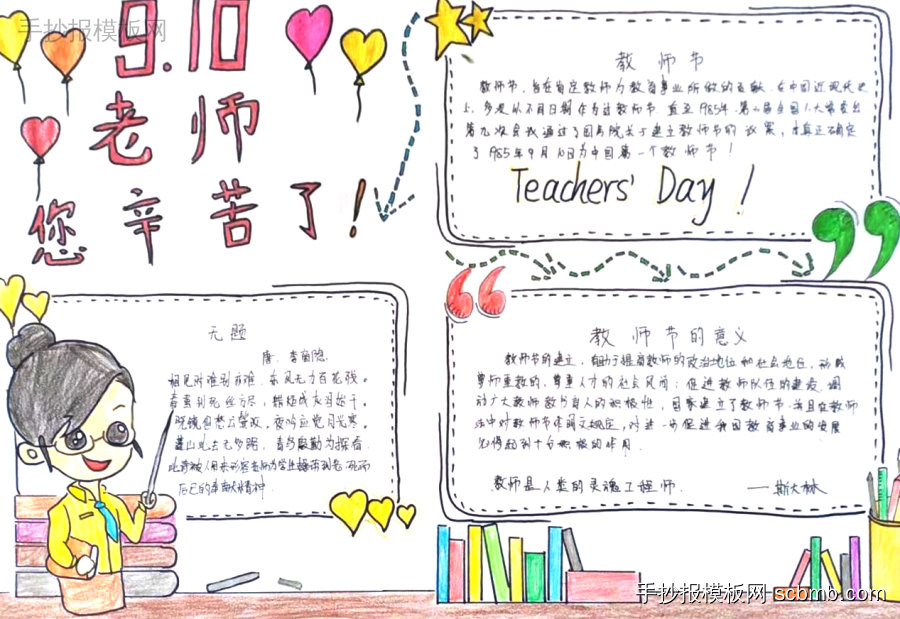 手抄报模板网
9.10
老师
您辛苦了！
教师节
教师节，旨在肯定教师为教育事业所做的贡献。在中国近现代史
上，多次以不同日期作为过教师节。直至1985年，第六届全国人大常委会
第九次会议通过了国务院关于建立教师节的议案，才真正确定
了1985年9月10日为中国第一个教师节！
Teachers' Day！
无题
唐：李商隐
相见时难别亦难，东风无力百花残。
春蚕到死丝方尽，蜡炬成灰泪始干。
晓镜但愁云鬓改，夜吟应觉月光寒。
蓬山此去无多路，青鸟殷勤为探看。
此诗被人用来形容老师为学生操劳到老，死而
后已的奉献精神。
教师节的意义
教师节的建立，有助于提高教师的政治地位和社会地位，形成
尊师重教的、尊重人才的社会风尚；促进教师队伍的建设，调
动广大教师教书育人的积极性，国家建立了教师节，并且在教师
法中对教师节作明文规定，对进一步促进我国教育事业的发展
必将起到十分积极的作用。
教师是人类的灵魂工程师。 ——斯大林
手抄报模板网 scbmb.com